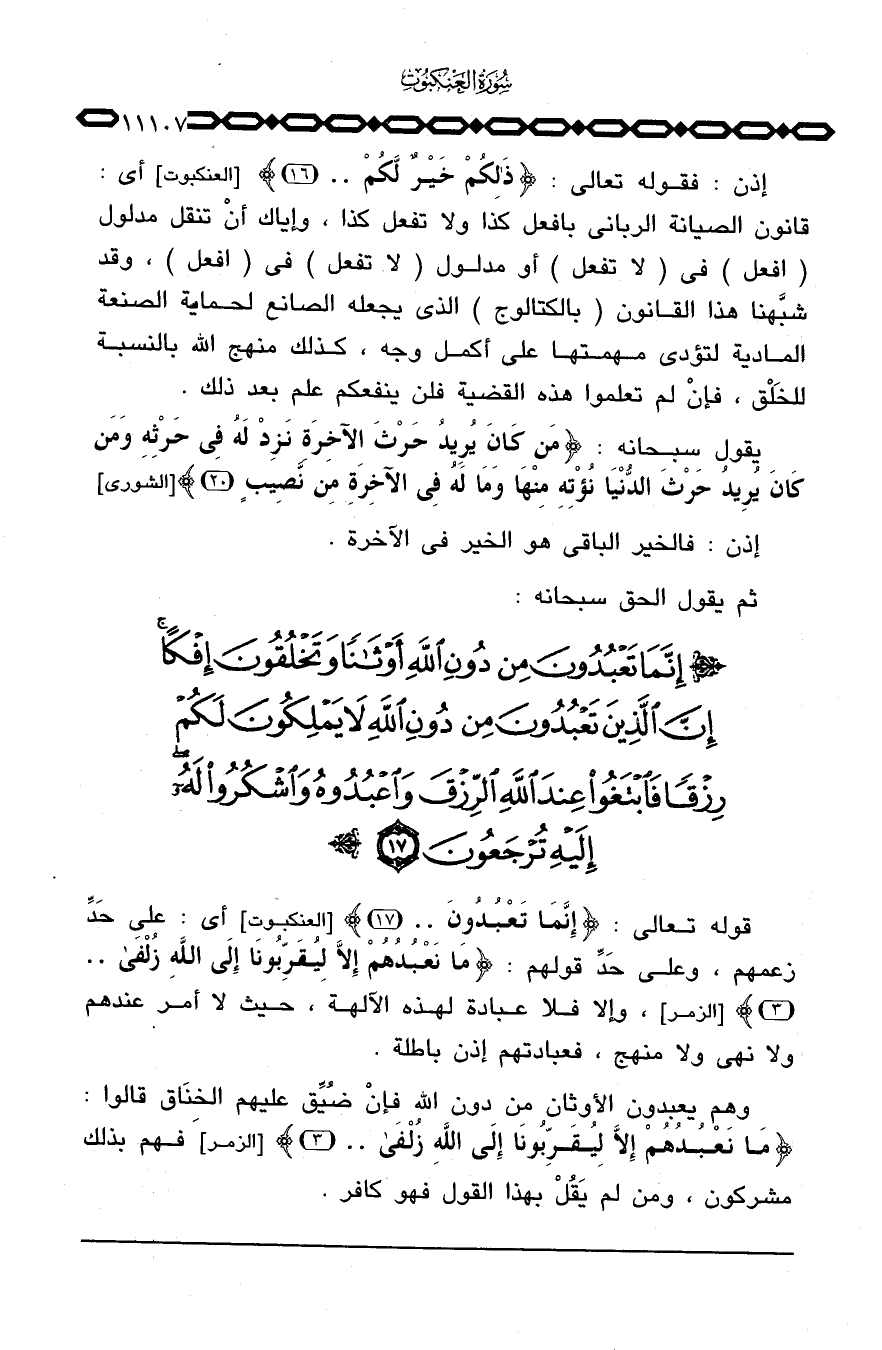 سُورَةُ العَنكَبُوتِ
١١١٠٧
إذن : فقوله تعالى : ﴿ ذَٰلِكُمْ خَيْرٌ لَّكُمْ .. (١٦) ﴾ [العنكبوت] أى :
قانون الصيانة الربانى بافعل كذا ولا تفعل كذا ، وإياك أنْ تنقل مدلول
( افعل ) فى ( لا تفعل ) أو مدلول ( لا تفعل ) فى ( افعل ) ، وقد
شبَّهنا هذا القانون ( بالكتالوج ) الذى يجعله الصانع لحماية الصنعة
المادية لتؤدى مهمتها على أكمل وجه ، كذلك منهج الله بالنسبة
للخَلْق ، فإنْ لم تعلموا هذه القضية فلن ينفعكم علم بعد ذلك .
يقول سبحانه : ﴿ مَن كَانَ يُرِيدُ حَرْثَ الآخِرَةِ نَزِدْ لَهُ فِى حَرْثِهِ وَمَن
كَانَ يُرِيدُ حَرْثَ الدُّنْيَا نُؤْتِهِ مِنْهَا وَمَا لَهُ فِى الآخِرَةِ مِن نَّصِيبٍ (٢٠) ﴾ [الشورى]
إذن : فالخير الباقى هو الخير فى الآخرة .
ثم يقول الحق سبحانه :
﴿ إِنَّمَا تَعْبُدُونَ مِن دُونِ ٱللَّهِ أَوْثَٰنًا وَتَخْلُقُونَ إِفْكًا ۚ
إِنَّ ٱلَّذِينَ تَعْبُدُونَ مِن دُونِ ٱللَّهِ لَا يَمْلِكُونَ لَكُمْ
رِزْقًا فَٱبْتَغُوا۟ عِندَ ٱللَّهِ ٱلرِّزْقَ وَٱعْبُدُوهُ وَٱشْكُرُوا۟ لَهُۥٓ ۖ
إِلَيْهِ تُرْجَعُونَ ١٧ ﴾
قوله تعالى : ﴿ إِنَّمَا تَعْبُدُونَ .. (١٧) ﴾ [العنكبوت] أى : على حَدِّ
زعمهم ، وعلى حَدِّ قولهم : ﴿ مَا نَعْبُدُهُمْ إِلاَّ لِيُقَرِّبُونَا إِلَى اللَّهِ زُلْفَىٰ ..
(٣) ﴾ [الزمر] ، وإلا فلا عبادة لهذه الآلهة ، حيث لا أمر عندهم
ولا نهى ولا منهج ، فعبادتهم إذن باطلة .
وهم يعبدون الأوثان من دون الله فإنْ ضُيِّق عليهم الخنَاق قالوا :
﴿ مَا نَعْبُدُهُمْ إِلاَّ لِيُقَرِّبُونَا إِلَى اللَّهِ زُلْفَىٰ .. (٣) ﴾ [الزمر] فهم بذلك
مشركون ، ومن لم يَقُلْ بهذا القول فهو كافر .